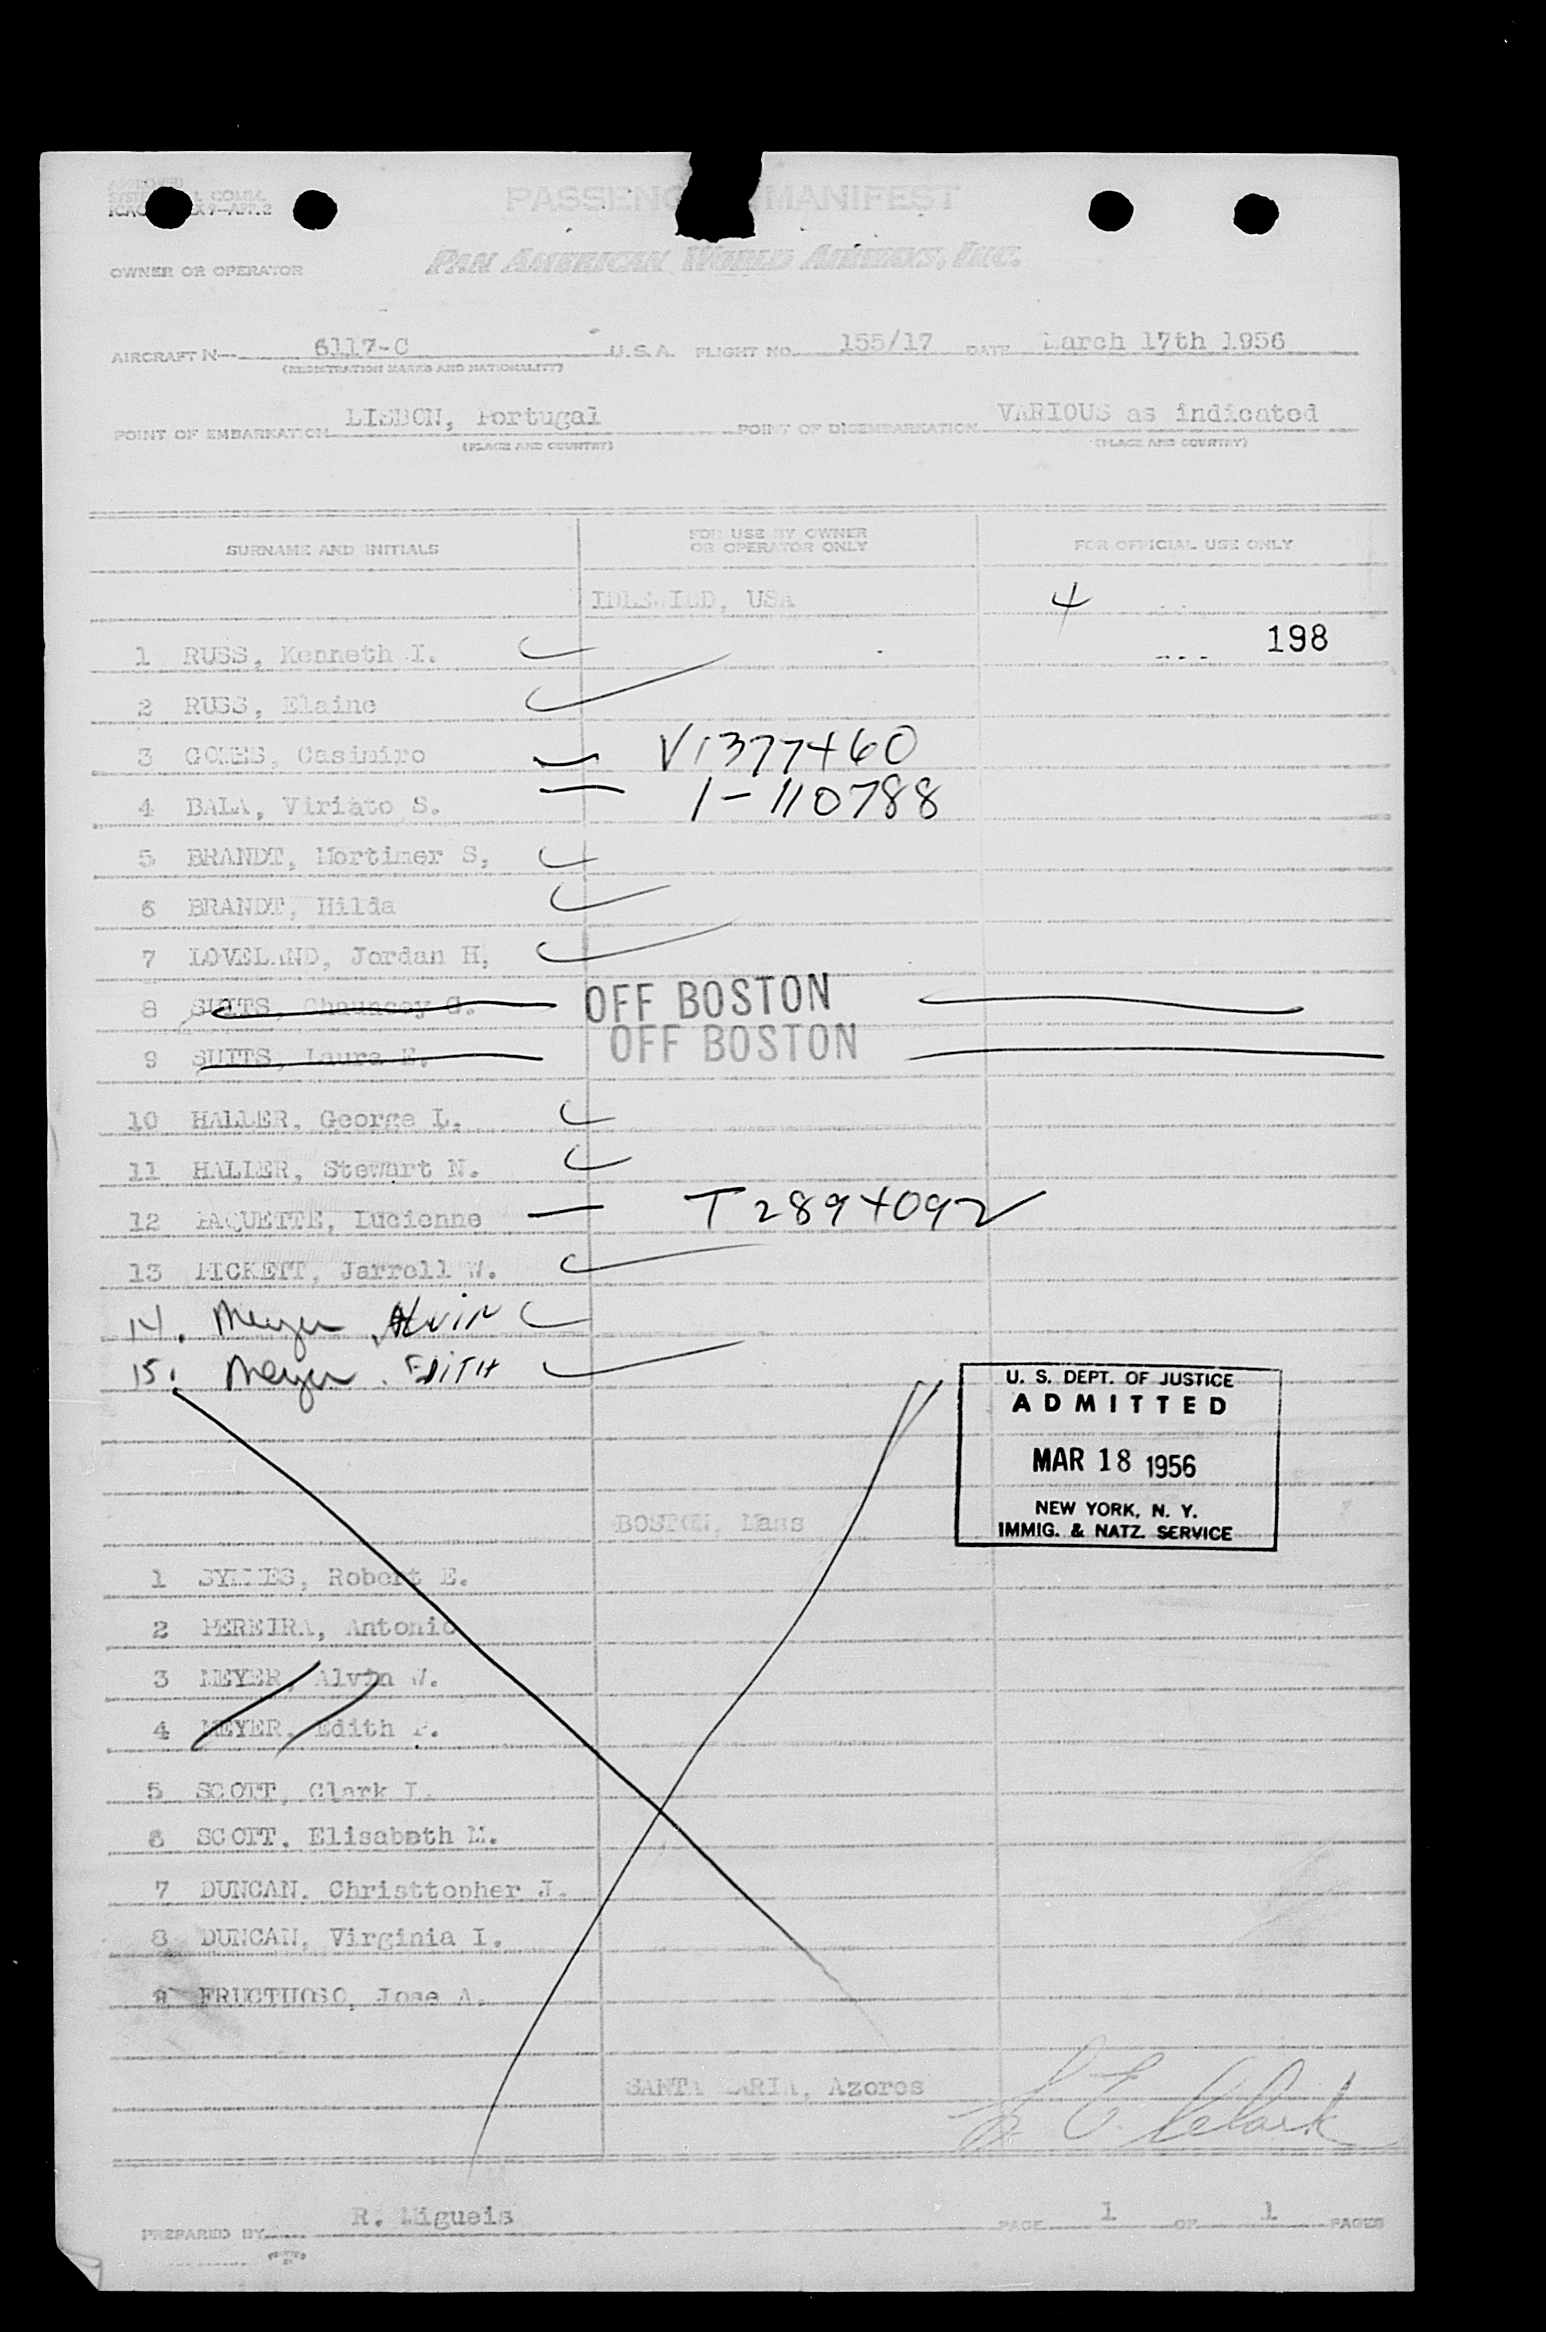 PASSENG MANIFEST
OWNER OR OPERATOR PAN AMERICAN WORLD AIRWAYS, INC.
AIRCRAFT N— 6117-C U.S.A. FLIGHT NO. 155/17 DATE March 17th 1956
(REGISTRATION MARKS AND NATIONALITY)
POINT OF EMBARKATION LISBON, Portugal POINT OF DISEMBARKATION VARIOUS as indicated
(PLACE AND COUNTRY) (PLACE AND COUNTRY)
SURNAME AND INITIALS FOR USE BY OWNER OR OPERATOR ONLY FOR OFFICIAL USE ONLY
IDLEWILD, USA 4
198
1 RUSS, Kenneth I.
2 RUSS, Elaine
3 GOMES, Casimiro V1377460
4 BALA, Viriato S. 1-110788
5 BRANDT, Mortimer S,
6 BRANDT, Hilda
7 LOVELAND, Jordan H,
8 SUITS, Chauncey G. OFF BOSTON
9 SUITS, Laura E. OFF BOSTON
10 HALLER, George L.
11 HALLER, Stewart N.
12 PAQUETTE, Lucienne T2894092
13 PICKETT, Jarrell W.
14. Meyer, Alvin
15. Meyer. EDITH
U. S. DEPT. OF JUSTICE
ADMITTED
MAR 18 1956
NEW YORK, N. Y.
IMMIG. & NATZ. SERVICE
BOSTON, Mass
1 SYMMES, Robert E.
2 PEREIRA, Antonio
3 MEYER, Alvin W.
4 MEYER, Edith F.
5 SCOTT, Clark L.
6 SCOTT, Elisabeth M.
7 DUNCAN, Christtopher J.
8 DUNCAN, Virginia I.
9 FRUCTUOSO, Jose A.
SANTA MARIA, Azores
E. Clark
PREPARED BY R. Migueis PAGE 1 OF 1 PAGES